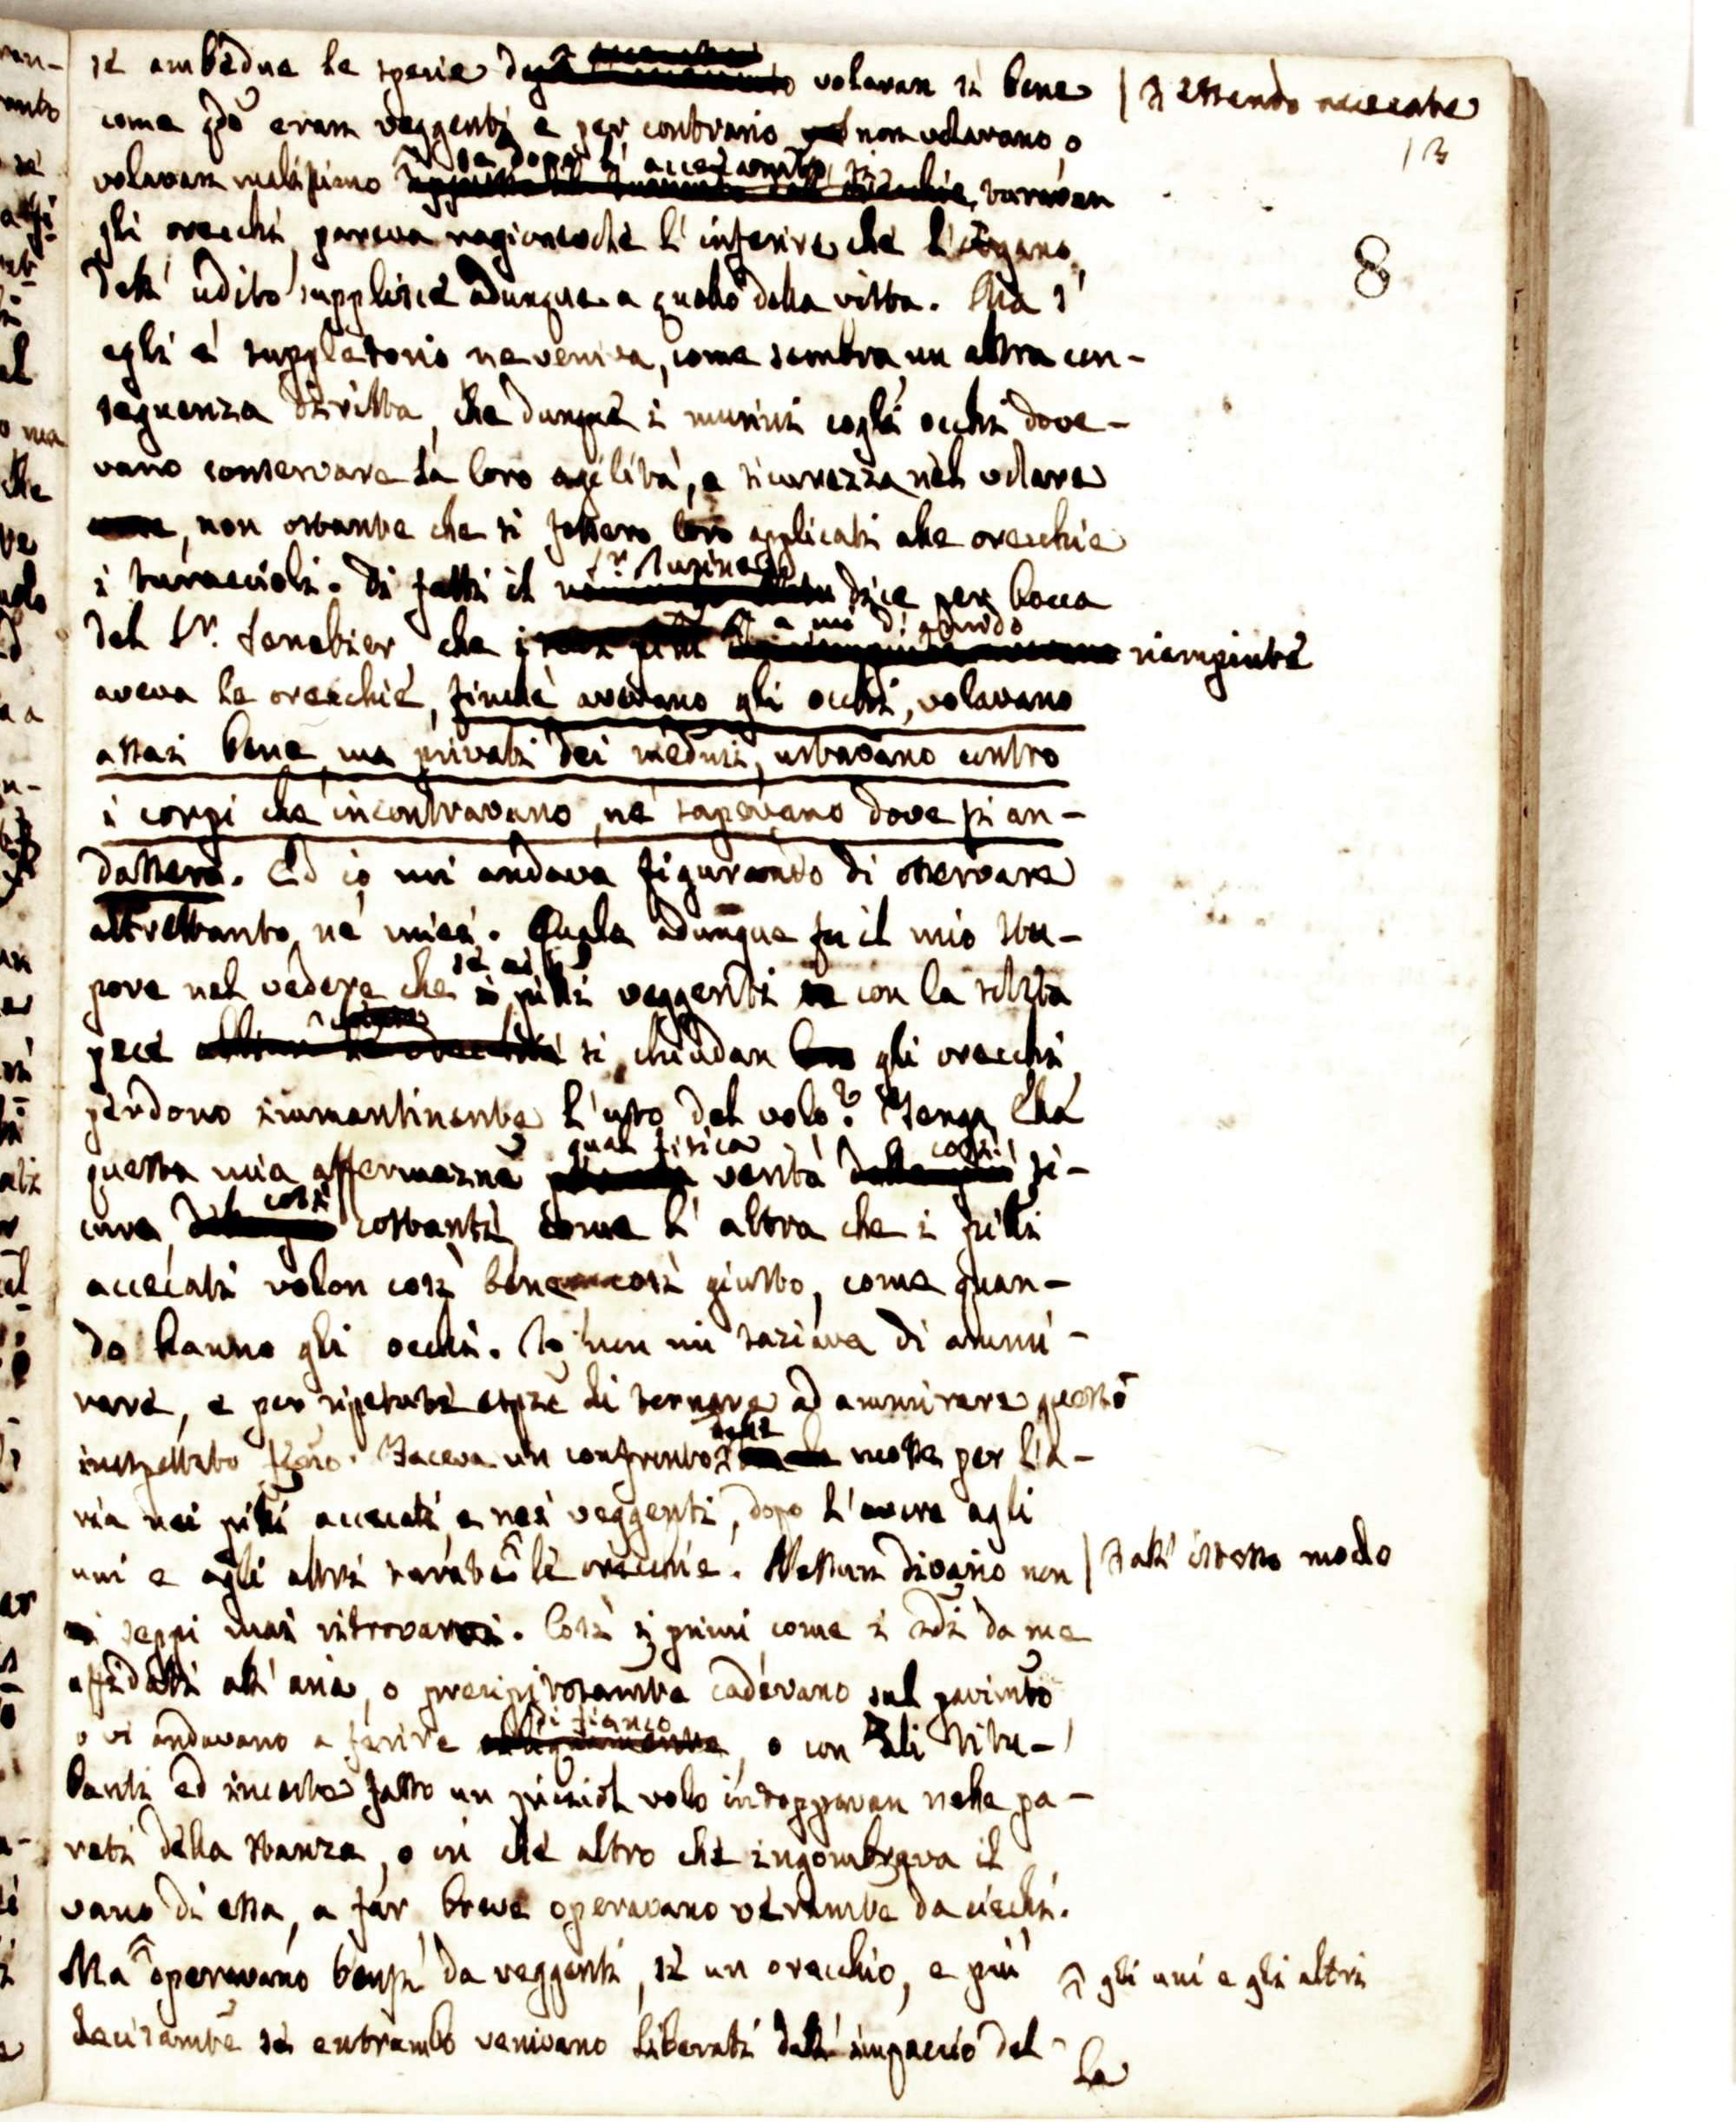 se ambedue le specie volavan sì bene | essendo accecate
come eran veggenti e per contrario non volavano, o
13
volavan malissimo se dopo l'accecamto si turavan
gli orecchi, pareva ragionevole l'inferire che l'organo
8
dell'udito supplisce adunque a quello della vista. Ma s'
egli è suppletorio ne veniva, come sembra, un altra con-
seguenza diritta, che dunque i muniti cogli occhi dove-
vano conservare la loro agilità, e sicurezza nel volare
, non ostante che si fossero loro applicati alle orecchie
i turaccioli. Di fatti il Sr. Jurine dice per bocca
del Sr. Senebier che riempiute
aveva le orecchie, finché avevano gli occhi, volavano
assai bene, ma privati dei medmi, urtavano contro
i corpi che incontravano, né sapevano dove si an-
dassero. Ed io mi andava figurando di osservare
altrettanto ne' miei. Quale adunque fu il mio stu-
pore nel vedere che se ai veggenti con la solita
pece si chiudan gli orecchi
perdono immantinente l'uso del volo? Tenga Ella
questa mia affermazne qual fisica verità così si-
cura, così costante, come l'altra che i
accecati volon così bene così giusto, come quan-
do hanno gli occhi. Io non mi saziava di ammi-
rare, e per ripetute di tornare ad ammirare questo
inaspettato. Faceva un confronto mosse per l'a-
ria nei accecati e nei veggenti, dopo l'avere agli
uni e agli altri turate le orecchie. Nessun divario non | all'istesso modo
seppi mai ritrovarvi. Così i primi come i da me
affidati all'aria, o precipitosamte cadevano sul pavimto
o vi andavano a ferire di fianco, o con ali titu-
banti ed incerte fatto un picciol volo intoppavan nelle pa-
reti della stanza, o in che altro che ingombrava il
vano di essa, a far breve operavano veramte da ciechi.
Ma operavano bensì da veggenti, se un orecchio, e più gli uni e gli altri
decisamte se entrambo venivano liberati dall'impaccio del-
la